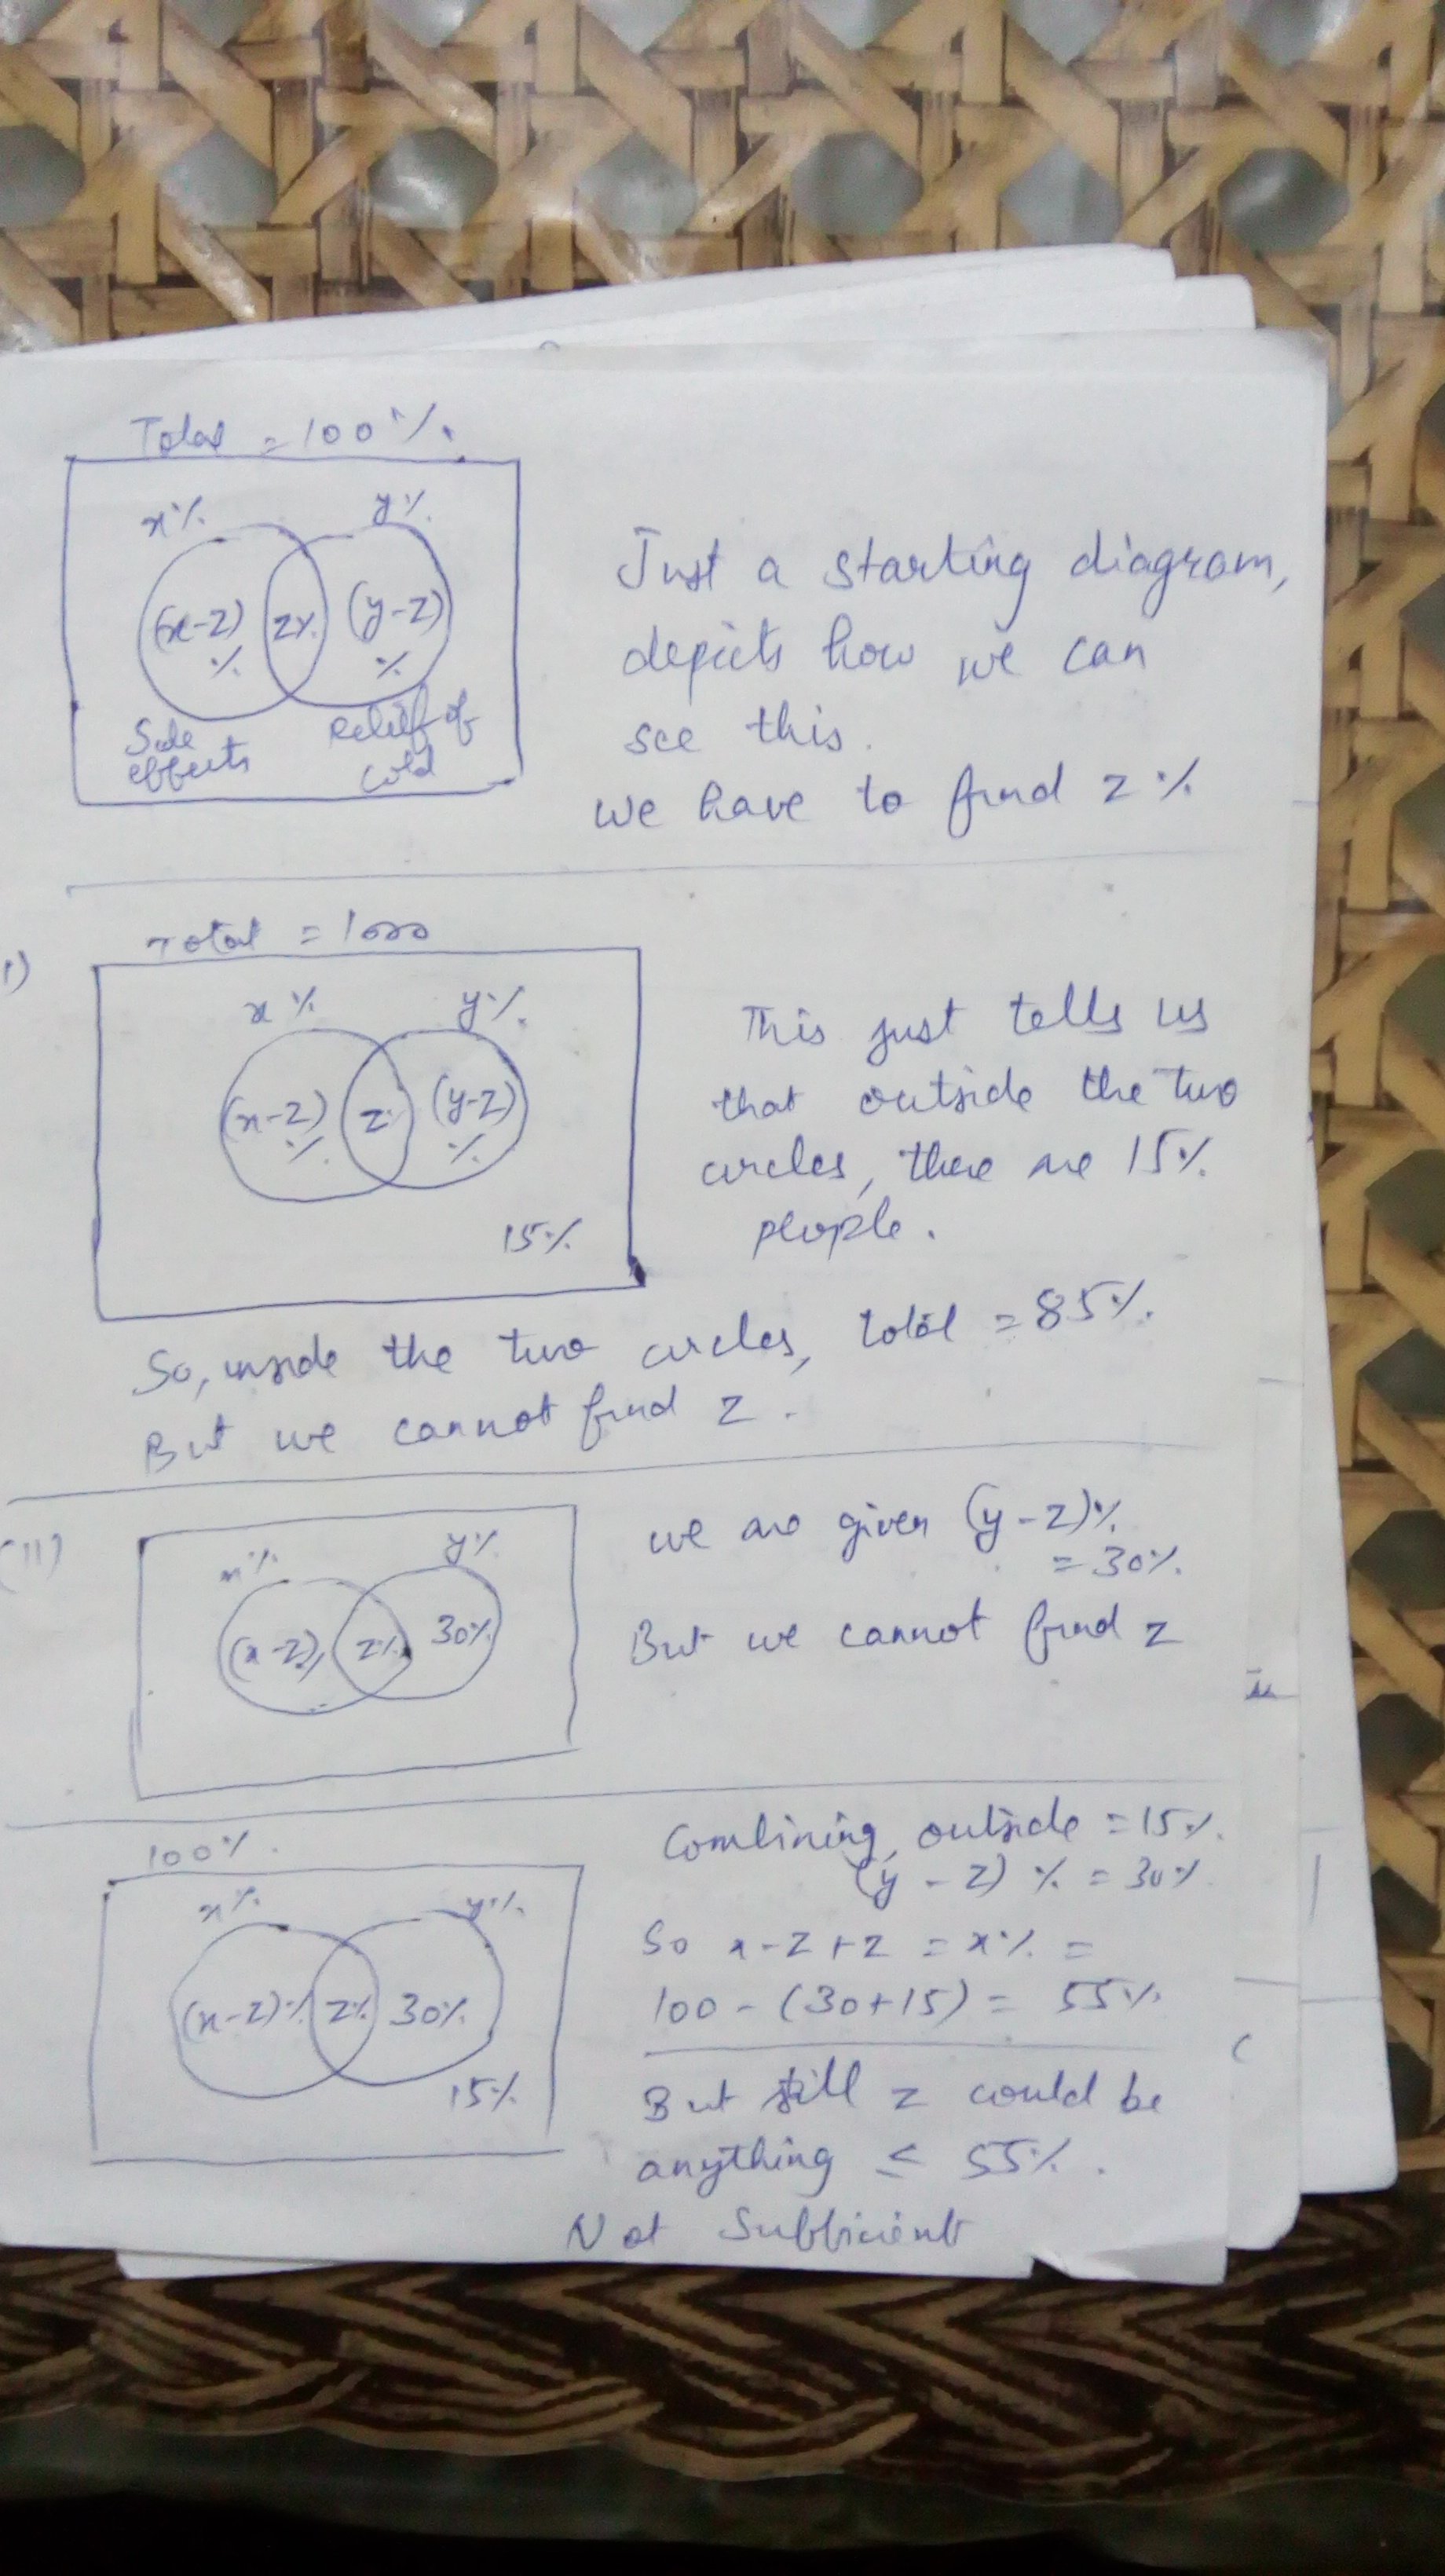 Total = 100%
x%
y%
(x-z)
%
z%
(y-z)
%
Side
effects
Relief of
cold
Just a starting diagram,
depicts how we can
see this.
we have to find z%
I)
Total = 1000
x%
y%
(x-z)
%
z
(y-z)
%
15%
This just tells us
that outside the two
circles, there are 15%
people.
So, inside the two circles, total = 85%.
But we cannot find z.
(II)
x%
y%
(x-z)
z%
30%
we are given (y-z)%
= 30%.
But we cannot find z
100%.
x%
y%
(x-z)%
z%
30%
15%
Combining, outside = 15%.
(y-z)% = 30%
So x-z+z = x% =
100 - (30+15) = 55%
But still z could be
anything ≤ 55%.
Not Sufficient